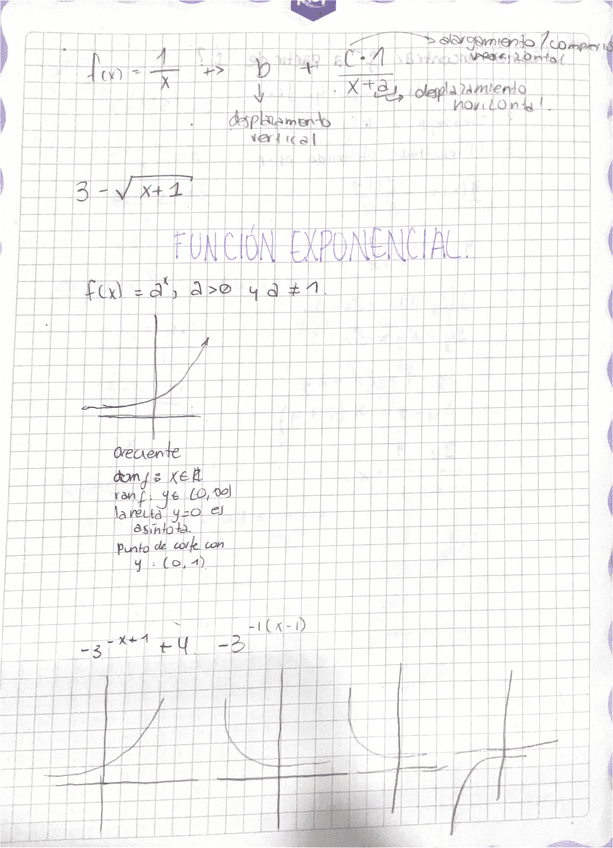 f(x) = 1/x ↔ b + c·1/x+a → alargamiento/
horizontal
desplazamiento
horizontal.
desplazamento
vertical
3 - √x+1
FUNCIÓN EXPONENCIAL.
f(x) = a^x; a>0 y a ≠ 1.
creciente
dom f = x ∈ R
ran f. y ∈ (0, ∞)
la recta y=0 es
asintota.
punto de corte con
y . (0, 1)
-3^-x+1 + 4 -3^-1(x-1)